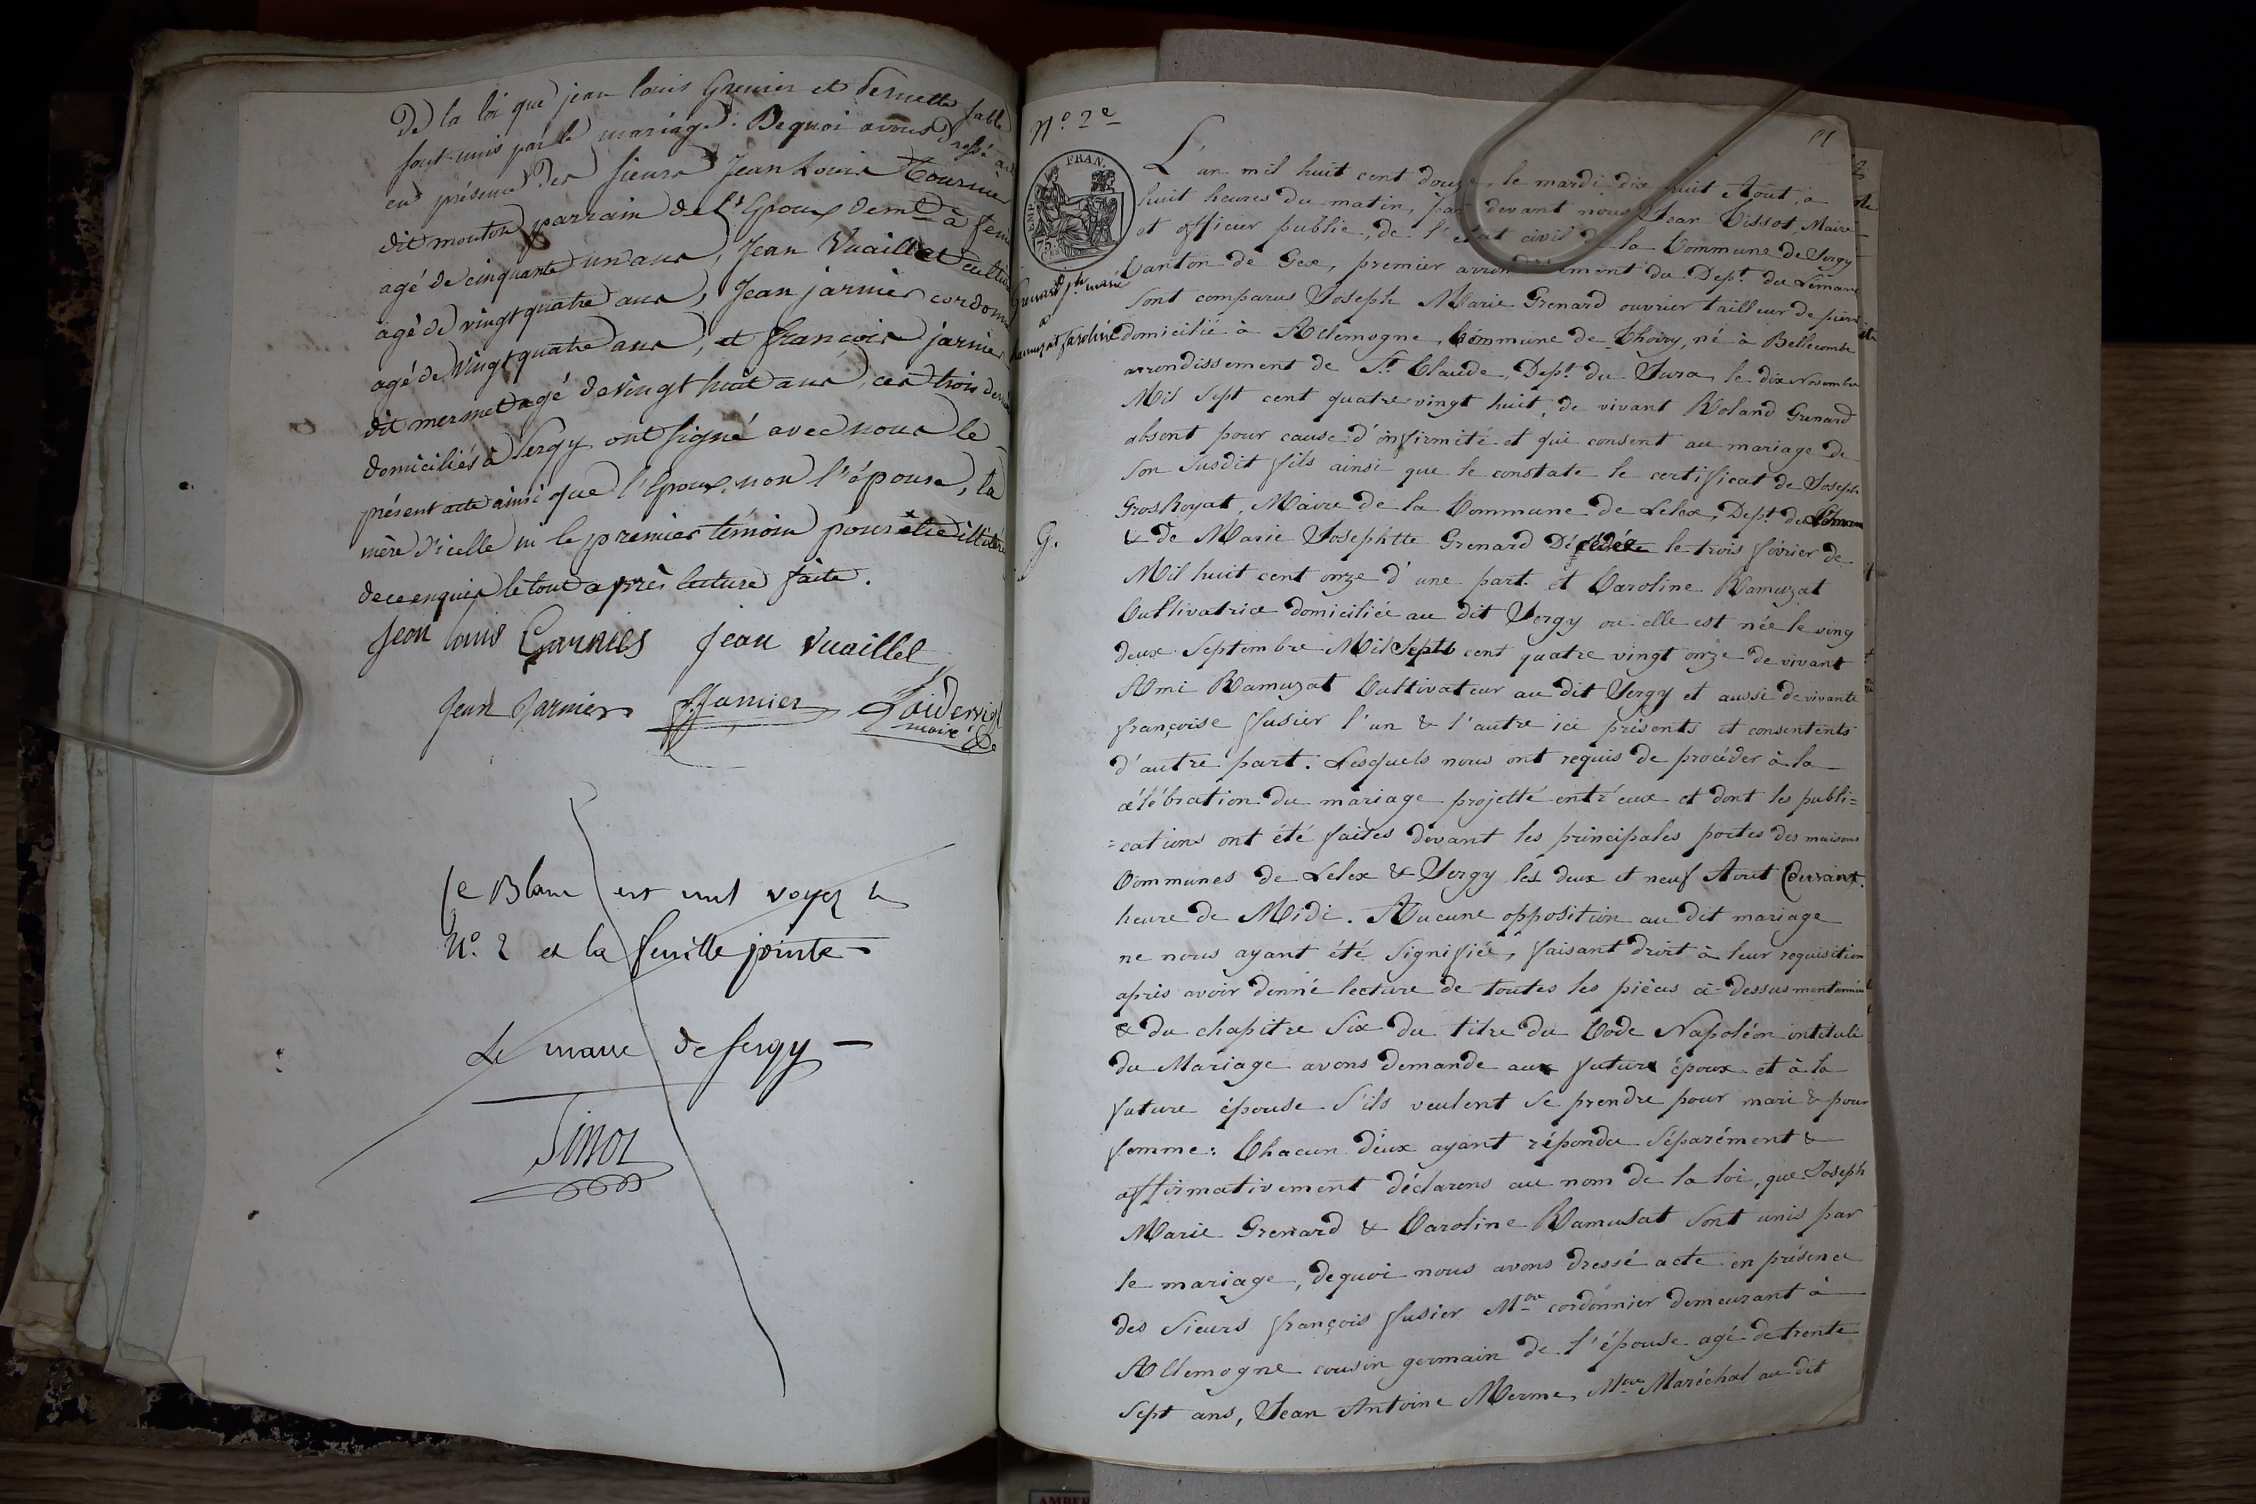 De la loi que jean louis Grenier et Pernette fable
sont unis par le mariage. De quoi avons dressé acte
en présence des sieurs Jean Louis Tournier
dit mouton parrain de l'Epoux demt. à
agé de cinquante un ans, Jean Vuaillet
agé de vingt quatre ans, Jean jarnier
agé de vingt quatre ans, et françois jarnier
dit mermet agé de vingt huit ans, ces trois
domiciliés à Sergy ont signé avec nous le
présent acte ainsi que l'Epoux, non l'épouse, la
mère d'icelle ni le premier témoin pour être
de ce enquis le tout après lecture faite.
Jean louis Jean Vuaillet
Jean Jarnier
maire
Ce Blanc est nul voyez le
N°. 2 et la feuille jointe
Le maire de Sergy
N° 2e
EMP. FRAN.
75.
Grenard jh marie
a
Ramuzat Caroline
G.
L'an mil huit cent douze, le mardi dix huit Aout, à
huit heures du matin, par devant nous Jean Tissot, Maire
et officier public, de l'état civil de la Commune de Sergy
Canton de Gex, premier arrondissement du Dept. du Léman
sont comparus Joseph Marie Grenard ouvrier tailleur de pierre
domicilié à Allemogne, Commune de Thoiry, né à Bellecombe
arrondissement de St. Claude, Dept. du Jura, le dix Novembre
Mil sept cent quatre vingt huit, de vivant Roland Grenard
absent pour cause d'infirmité et qui consent au mariage de
son susdit fils ainsi que le constate le certificat de Joseph
GrosRoyat, Maire de la Commune de Lelex, Dept. du Léman
& de Marie Josephtte Grenard Décédée le trois février de
Mil huit cent onze d'une part. et Caroline Ramuzat
Cultivatrice domiciliée au dit Sergy ou elle est née le ving
deux Septembre Mil Sept cent quatre vingt onze de vivant
Ami Ramuzat Cultivateur au dit Sergy et aussi de vivante
françoise fusier l'un & l'autre ici présents et consentents
d'autre part. Lesquels nous ont requis de procéder à la
célébration du mariage projetté entr'eux et dont les publi=
=cations ont été faites devant les principales portes des maisons
Communes de Lelex & Sergy les deux et neuf Aout Courant.
heure de Midi. Aucune opposition au dit mariage
ne nous ayant été signifiée, faisant droit à leur requisition
après avoir donné lecture de toutes les pièces ci-dessus mentionnées
& du chapitre six du titre du Code Napoléon intitulé
du Mariage avons demande aux future époux et à la
future épouse s'ils veulent se prendre pour mari & pour
femme: Chacun d'eux ayant répondu séparément &
affirmativement déclarons au nom de la loi, que Joseph
Marie Grenard & Caroline Ramusat sont unis par
le mariage, de quoi nous avons dressé acte en présence
des sieurs françois fusier Mtre cordonnier demeurant à
Allemogne cousin germain de l'épouse agé de trente
sept ans, Jean Antoine Merme, Mtre Maréchal au dit